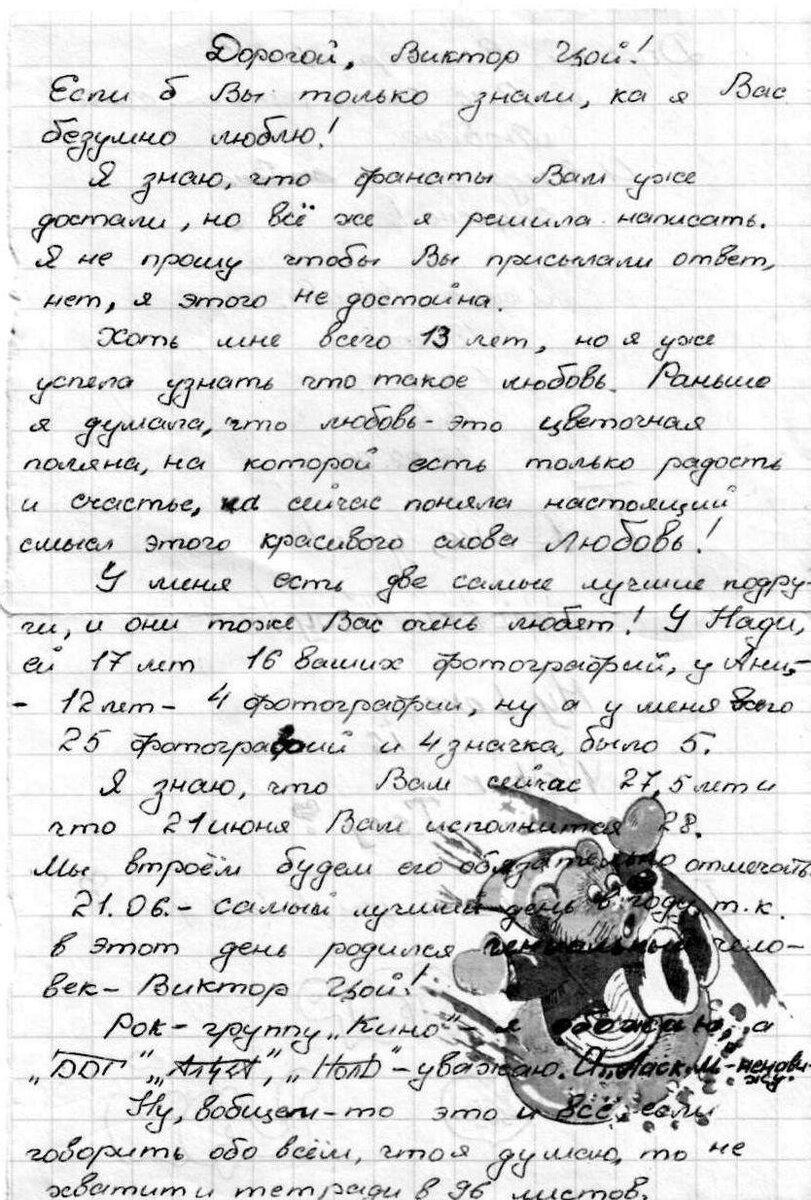 Дорогой, Виктор Цой!
Если б Вы только знали, ка я Вас
безумно люблю!
Я знаю, что фанаты Вам уже
достали, но всё же я решила написать.
Я не прошу чтобы Вы присылали ответ,
нет, я этого не достойна.
Хоть мне всего 13 лет, но я уже
успела узнать что такое любовь. Раньше
я думала, что любовь - это цветочная
поляна, на которой есть только радость
и счастье, но сейчас поняла настоящий
смысл этого красивого слова Любовь!
У меня есть две самые лучшие подру-
ги, и они тоже Вас очень любят! У Нади,
ей 17 лет 16 ваших фотографий, у Ани,-
- 12 лет - 4 фотографии, ну а у меня всего
25 фотографий и 4 значка, было 5.
Я знаю, что Вам сейчас 27,5 лет и
что 21 июня Вам исполнится 28.
Мы втроём будем его обязательно отмечать.
21.06. - самый лучший день в году, т.к.
в этот день родился гениальный чело-
век - Виктор Цой!
Рок - группу „Кино" - я обожаю, а
„ДДТ", „Алиса", „Ноль" - уважаю. А „Ласк. М. - ненави-
жу.
Ну, вобщем-то это и всё, если
говорить обо всём, что я думаю, то не
хватит и тетради в 96 листов.